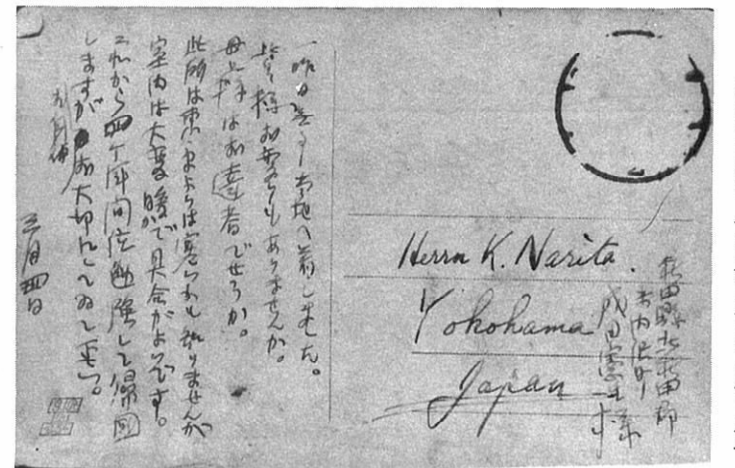 一昨日無事当地へ着しました。
皆々様お変りもありませんか。
母上様はお達者でせうか。
此所は東京よりは寒いかも知りませんが
室内は大変暖かで具合がよいです。
これから四ヶ年間位勉強して帰国
しますが お大切にしてゐて下さい。
三月四日
Herrn K. Narita.
Yokohama
Japan
秋田県北秋田郡
成田 様